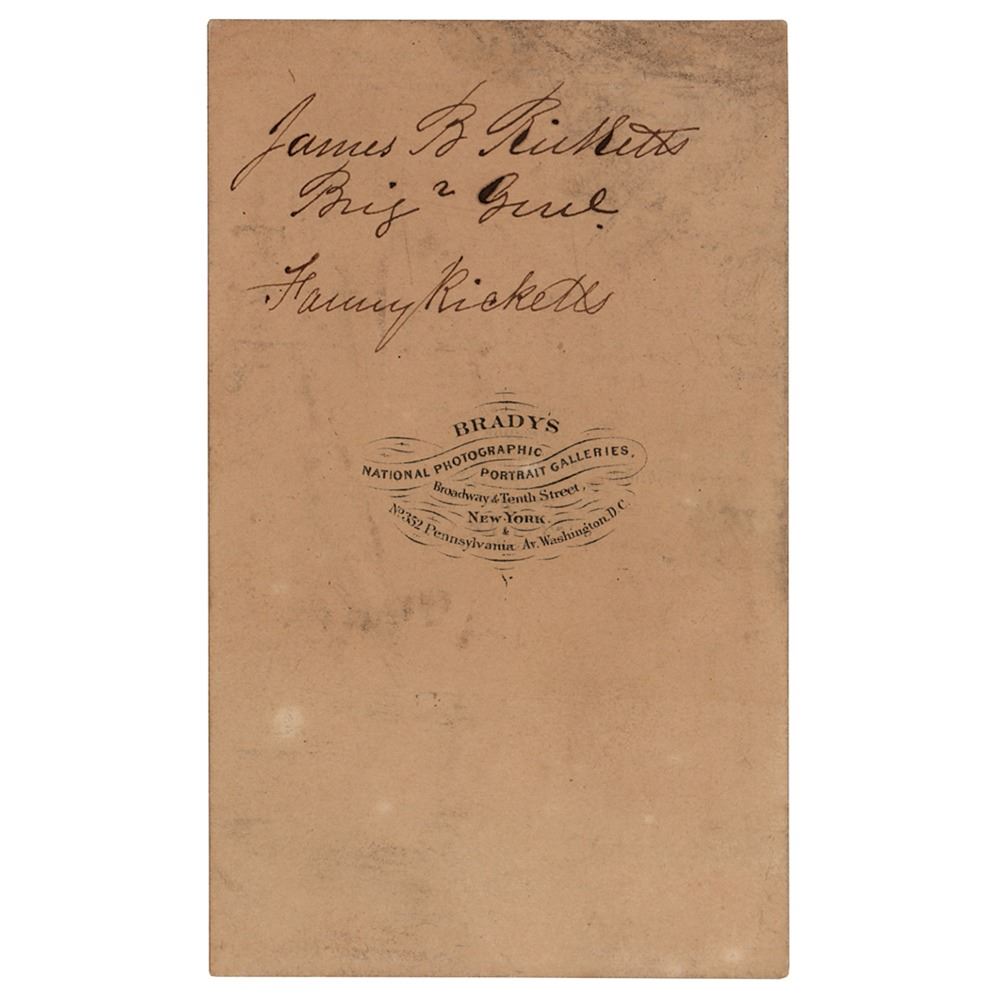 James B Ricketts
Brigr Genl.
Fanny Ricketts
BRADY'S
NATIONAL PHOTOGRAPHIC PORTRAIT GALLERIES,
Broadway & Tenth Street,
NEW-YORK.
&
No. 352 Pennsylvania Av. Washington, D.C.